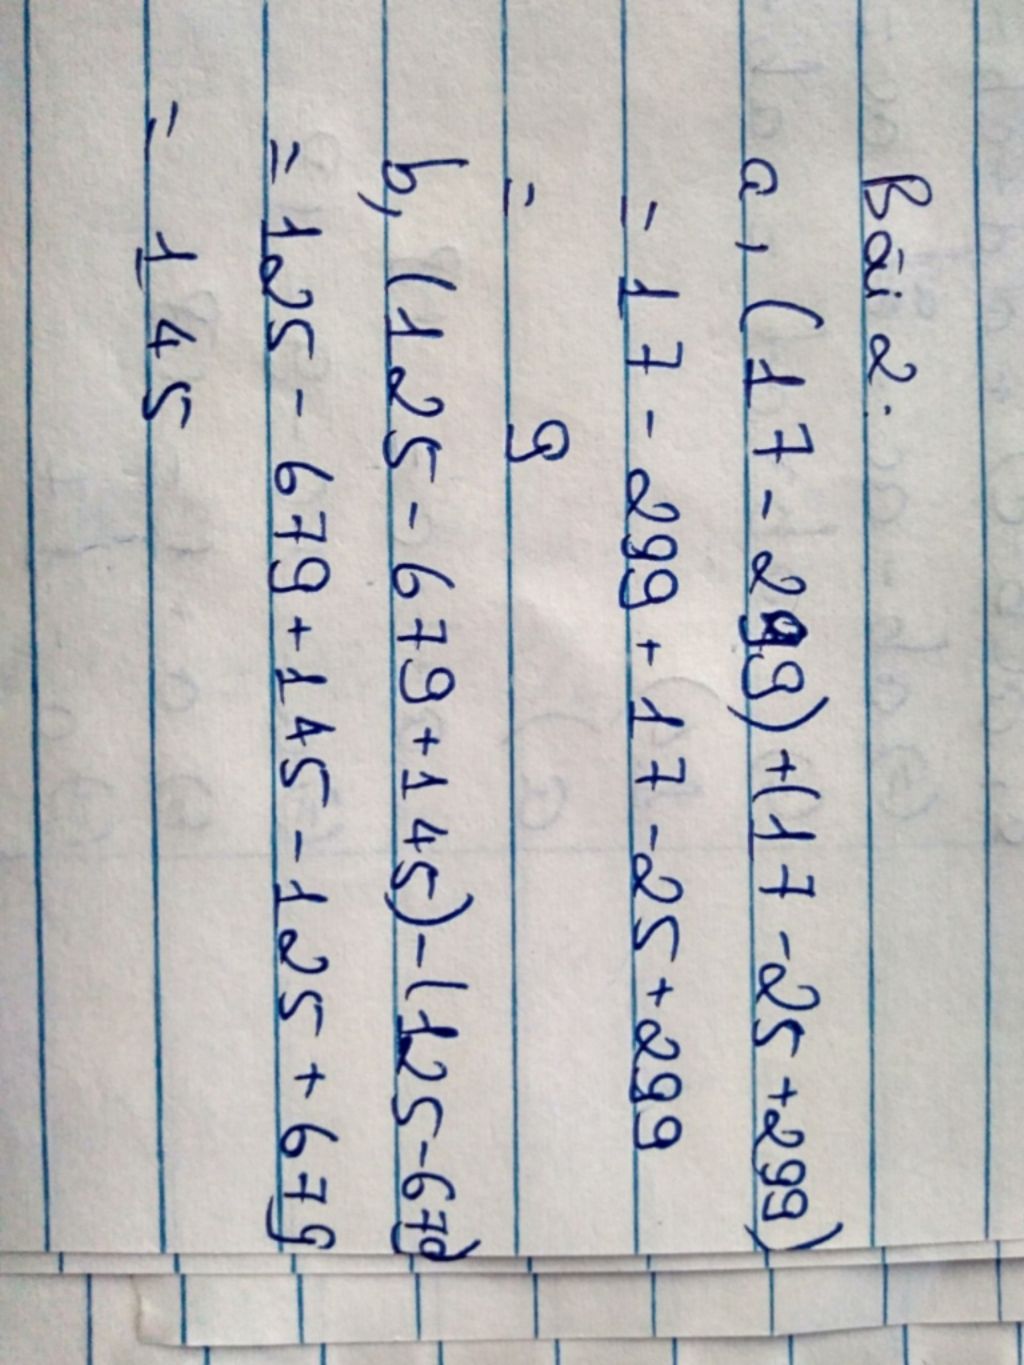 Bài 2.
a, (17-299)+(17-25+299)
= 17-299+17-25+299
= 9
b, (125-679+145)-(125-679)
= 125-679+145-125+679
= 145